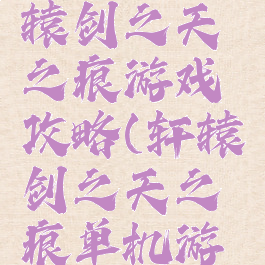 辕剑之天
之痕游戏
攻略(轩辕
剑之天之
痕单机游